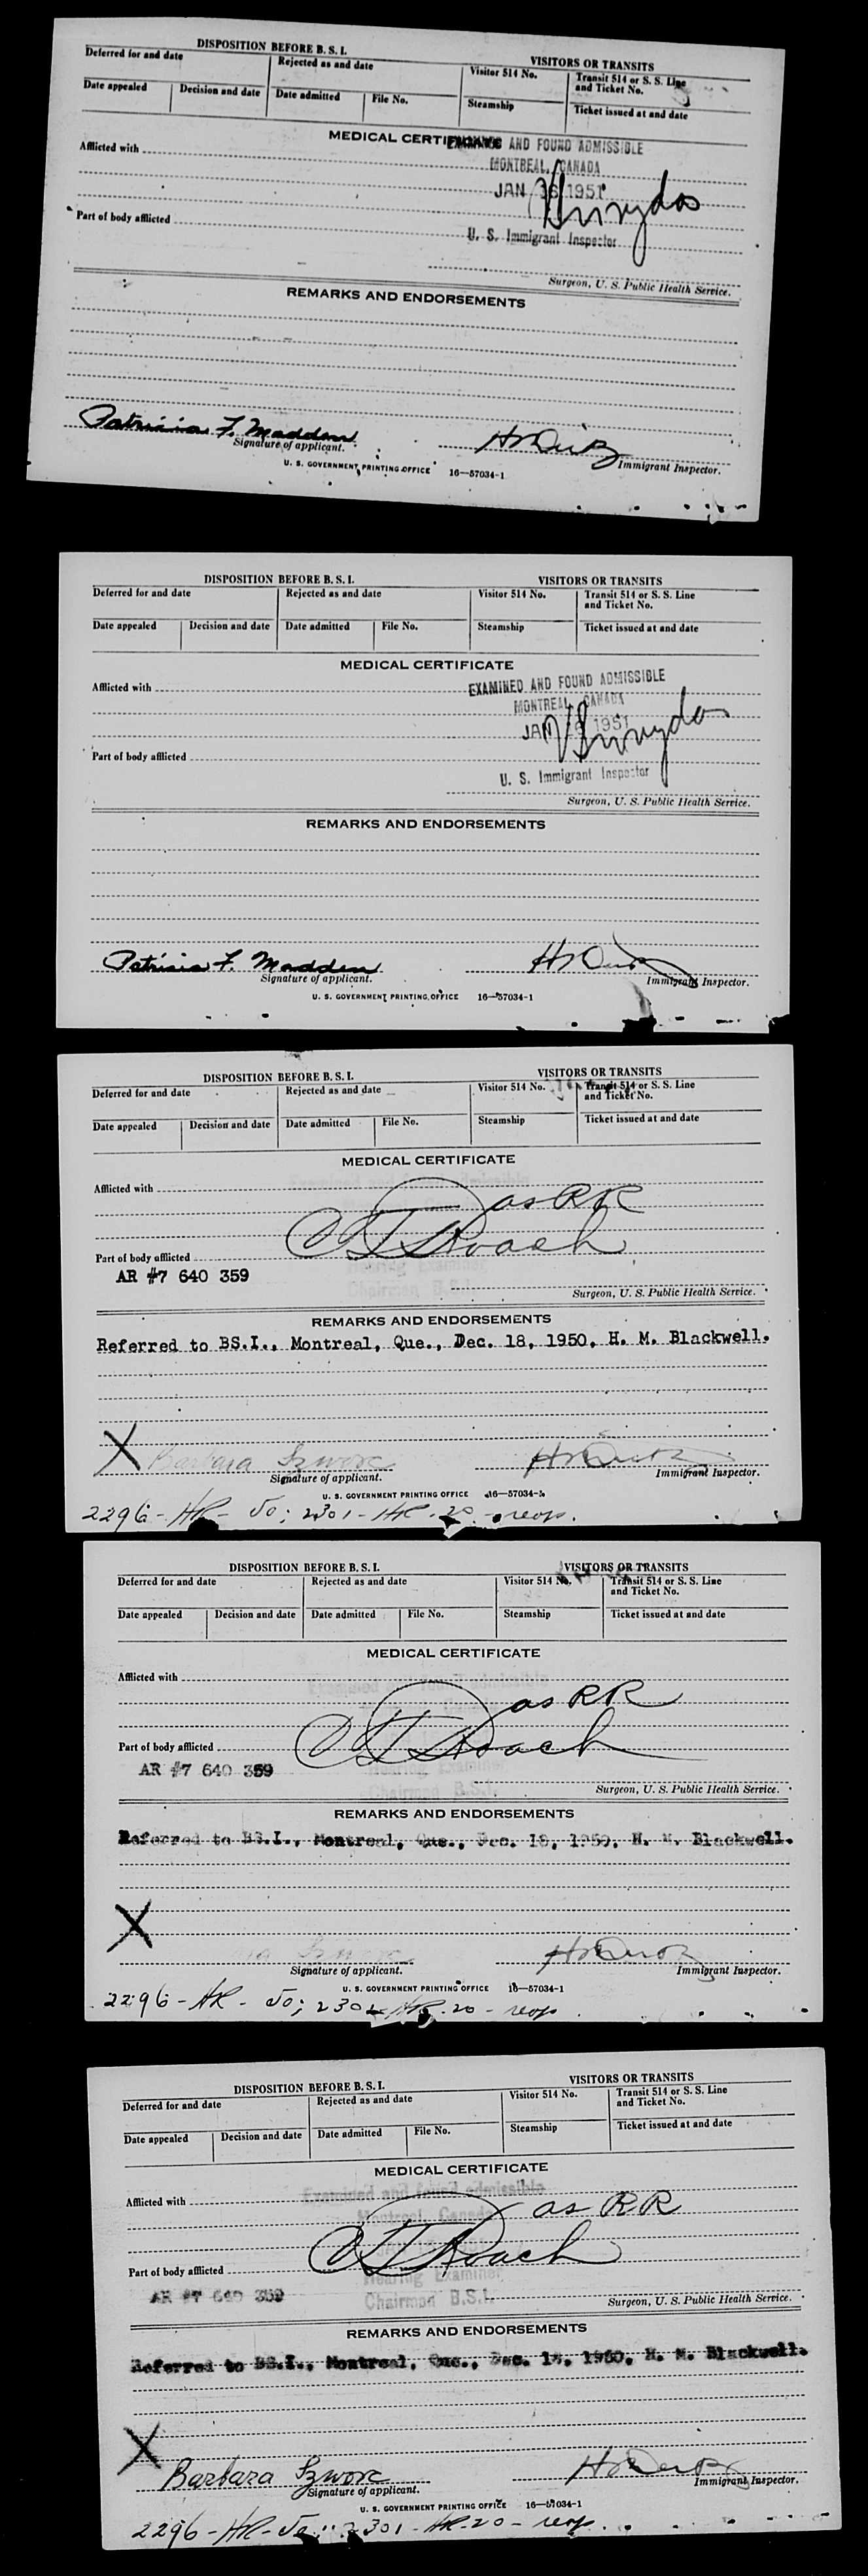 DISPOSITION BEFORE B. S. I.
VISITORS OR TRANSITS
Deferred for and date
Rejected as and date
Visitor 514 No.
Transit 514 or S. S. Line and Ticket No.
Date appealed
Decision and date
Date admitted
File No.
Steamship
Ticket issued at and date
AND FOUND ADMISSIBLE
Afflicted with
MONTREAL, CANADA
JAN 1951
Part of body afflicted
U. S. Immigrant Inspector
Surgeon, U. S. Public Health Service.
REMARKS AND ENDORSEMENTS
Patricia F. Madden
Signature of applicant.
Immigrant Inspector.
U. S. GOVERNMENT PRINTING OFFICE 16—57034-1
DISPOSITION BEFORE B. S. I.
VISITORS OR TRANSITS
Deferred for and date
Rejected as and date
Visitor 514 No.
Transit 514 or S. S. Line and Ticket No.
Date appealed
Decision and date
Date admitted
File No.
Steamship
Ticket issued at and date
MEDICAL CERTIFICATE
Afflicted with
EXAMINED AND FOUND ADMISSIBLE
MONTREAL, CANADA
1951
Part of body afflicted
U. S. Immigrant Inspector
Surgeon, U. S. Public Health Service.
REMARKS AND ENDORSEMENTS
Patricia F. Madden
Signature of applicant.
Immigrant Inspector.
U. S. GOVERNMENT PRINTING OFFICE 16—57034-1
DISPOSITION BEFORE B. S. I.
VISITORS OR TRANSITS
Deferred for and date
Rejected as and date
Visitor 514 No.
Transit 514 or S. S. Line and Ticket No.
Date appealed
Decision and date
Date admitted
File No.
Steamship
Ticket issued at and date
MEDICAL CERTIFICATE
Afflicted with
as RR
Roach
Part of body afflicted
AR #7 640 359
Chairman B.S.I.
Surgeon, U. S. Public Health Service.
REMARKS AND ENDORSEMENTS
Referred to BS.I., Montreal, Que., Dec. 18, 1950, H. M. Blackwell.
X Barbara Szworc
Signature of applicant.
Immigrant Inspector.
U. S. GOVERNMENT PRINTING OFFICE 16—57034-1
2296 - HR - 2301 - HR - 20 -
DISPOSITION BEFORE B. S. I.
VISITORS OR TRANSITS
Deferred for and date
Rejected as and date
Visitor 514 No.
Transit 514 or S. S. Line and Ticket No.
Date appealed
Decision and date
Date admitted
File No.
Steamship
Ticket issued at and date
MEDICAL CERTIFICATE
Afflicted with
as RR
Roach
Part of body afflicted
AR #7 640 359
Hearing Examiner
Chairman B.S.I.
Surgeon, U. S. Public Health Service.
REMARKS AND ENDORSEMENTS
Referred to BS.I., Montreal, Que., Dec. 18, 1950, H. M. Blackwell.
X
Signature of applicant.
Immigrant Inspector.
U. S. GOVERNMENT PRINTING OFFICE 16—57034-1
2296 - HR - HR - 20 -
DISPOSITION BEFORE B. S. I.
VISITORS OR TRANSITS
Deferred for and date
Rejected as and date
Visitor 514 No.
Transit 514 or S. S. Line and Ticket No.
Date appealed
Decision and date
Date admitted
File No.
Steamship
Ticket issued at and date
MEDICAL CERTIFICATE
Afflicted with
Examined and found admissible
Montreal, Canada
as RR
Roach
Part of body afflicted
AR #7 640 359
Hearing Examiner
Chairman B.S.I.
Surgeon, U. S. Public Health Service.
REMARKS AND ENDORSEMENTS
Referred to BS.I., Montreal, Que., Dec. 18, 1950, H. M. Blackwell.
X Barbara Szworc
Signature of applicant.
Immigrant Inspector.
U. S. GOVERNMENT PRINTING OFFICE 16—57034-1
2296 - HR - 2301 - HR - 20 -